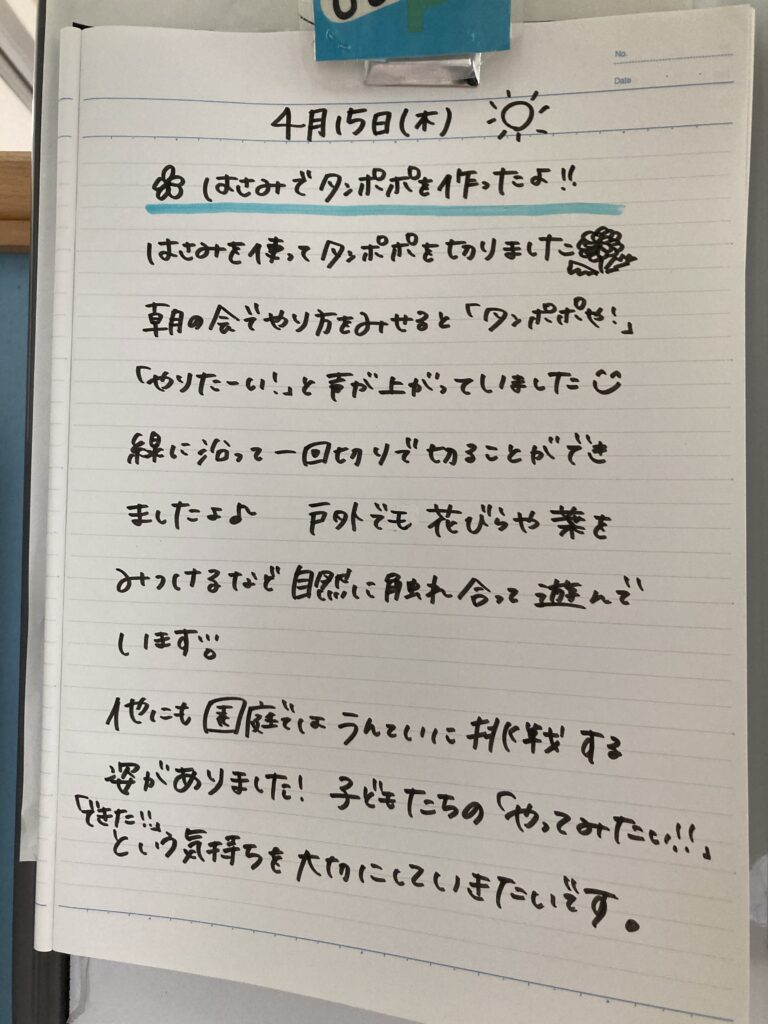 No.
Date
4月15日(木)
はさみでタンポポを作ったよ!!
はさみを使ってタンポポを切りました
朝の会でやり方をみせると「タンポポや!」
「やりたーい!」と声が上がっていました
線に沿って一回切りで切ることができ
ましたよ♪ 戸外でも花びらや葉を
みつけるなど自然に触れ合って遊んで
います!!。
他にも園庭ではうんていに挑戦する
姿がありました! 子どもたちの「やってみたい!!」
「できた!!」
という気持ちを大切にしていきたいです。